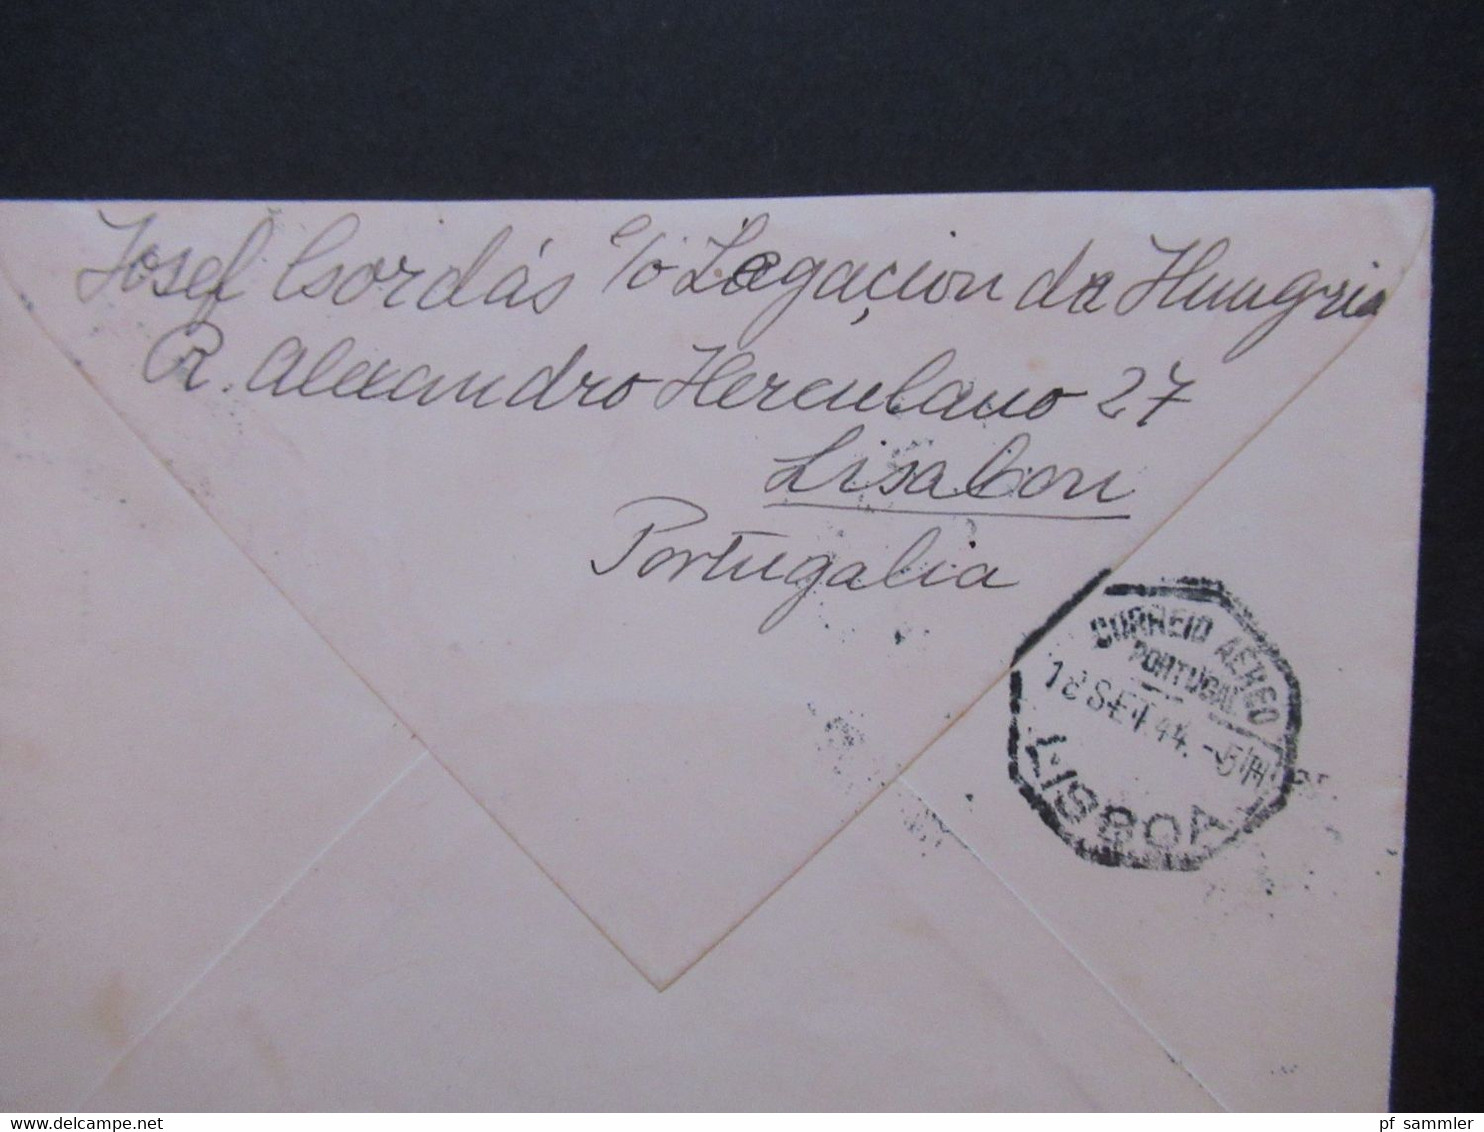 Josef Csordás c/o Legaçion da Hungria
R. Alexandro Herculano 27
Lisabon
Portugalia
CORREIO AEREO
PORTUGAL
18 SET. 44. - 5
LISBOA
www.delcampe.net
pf_sammler